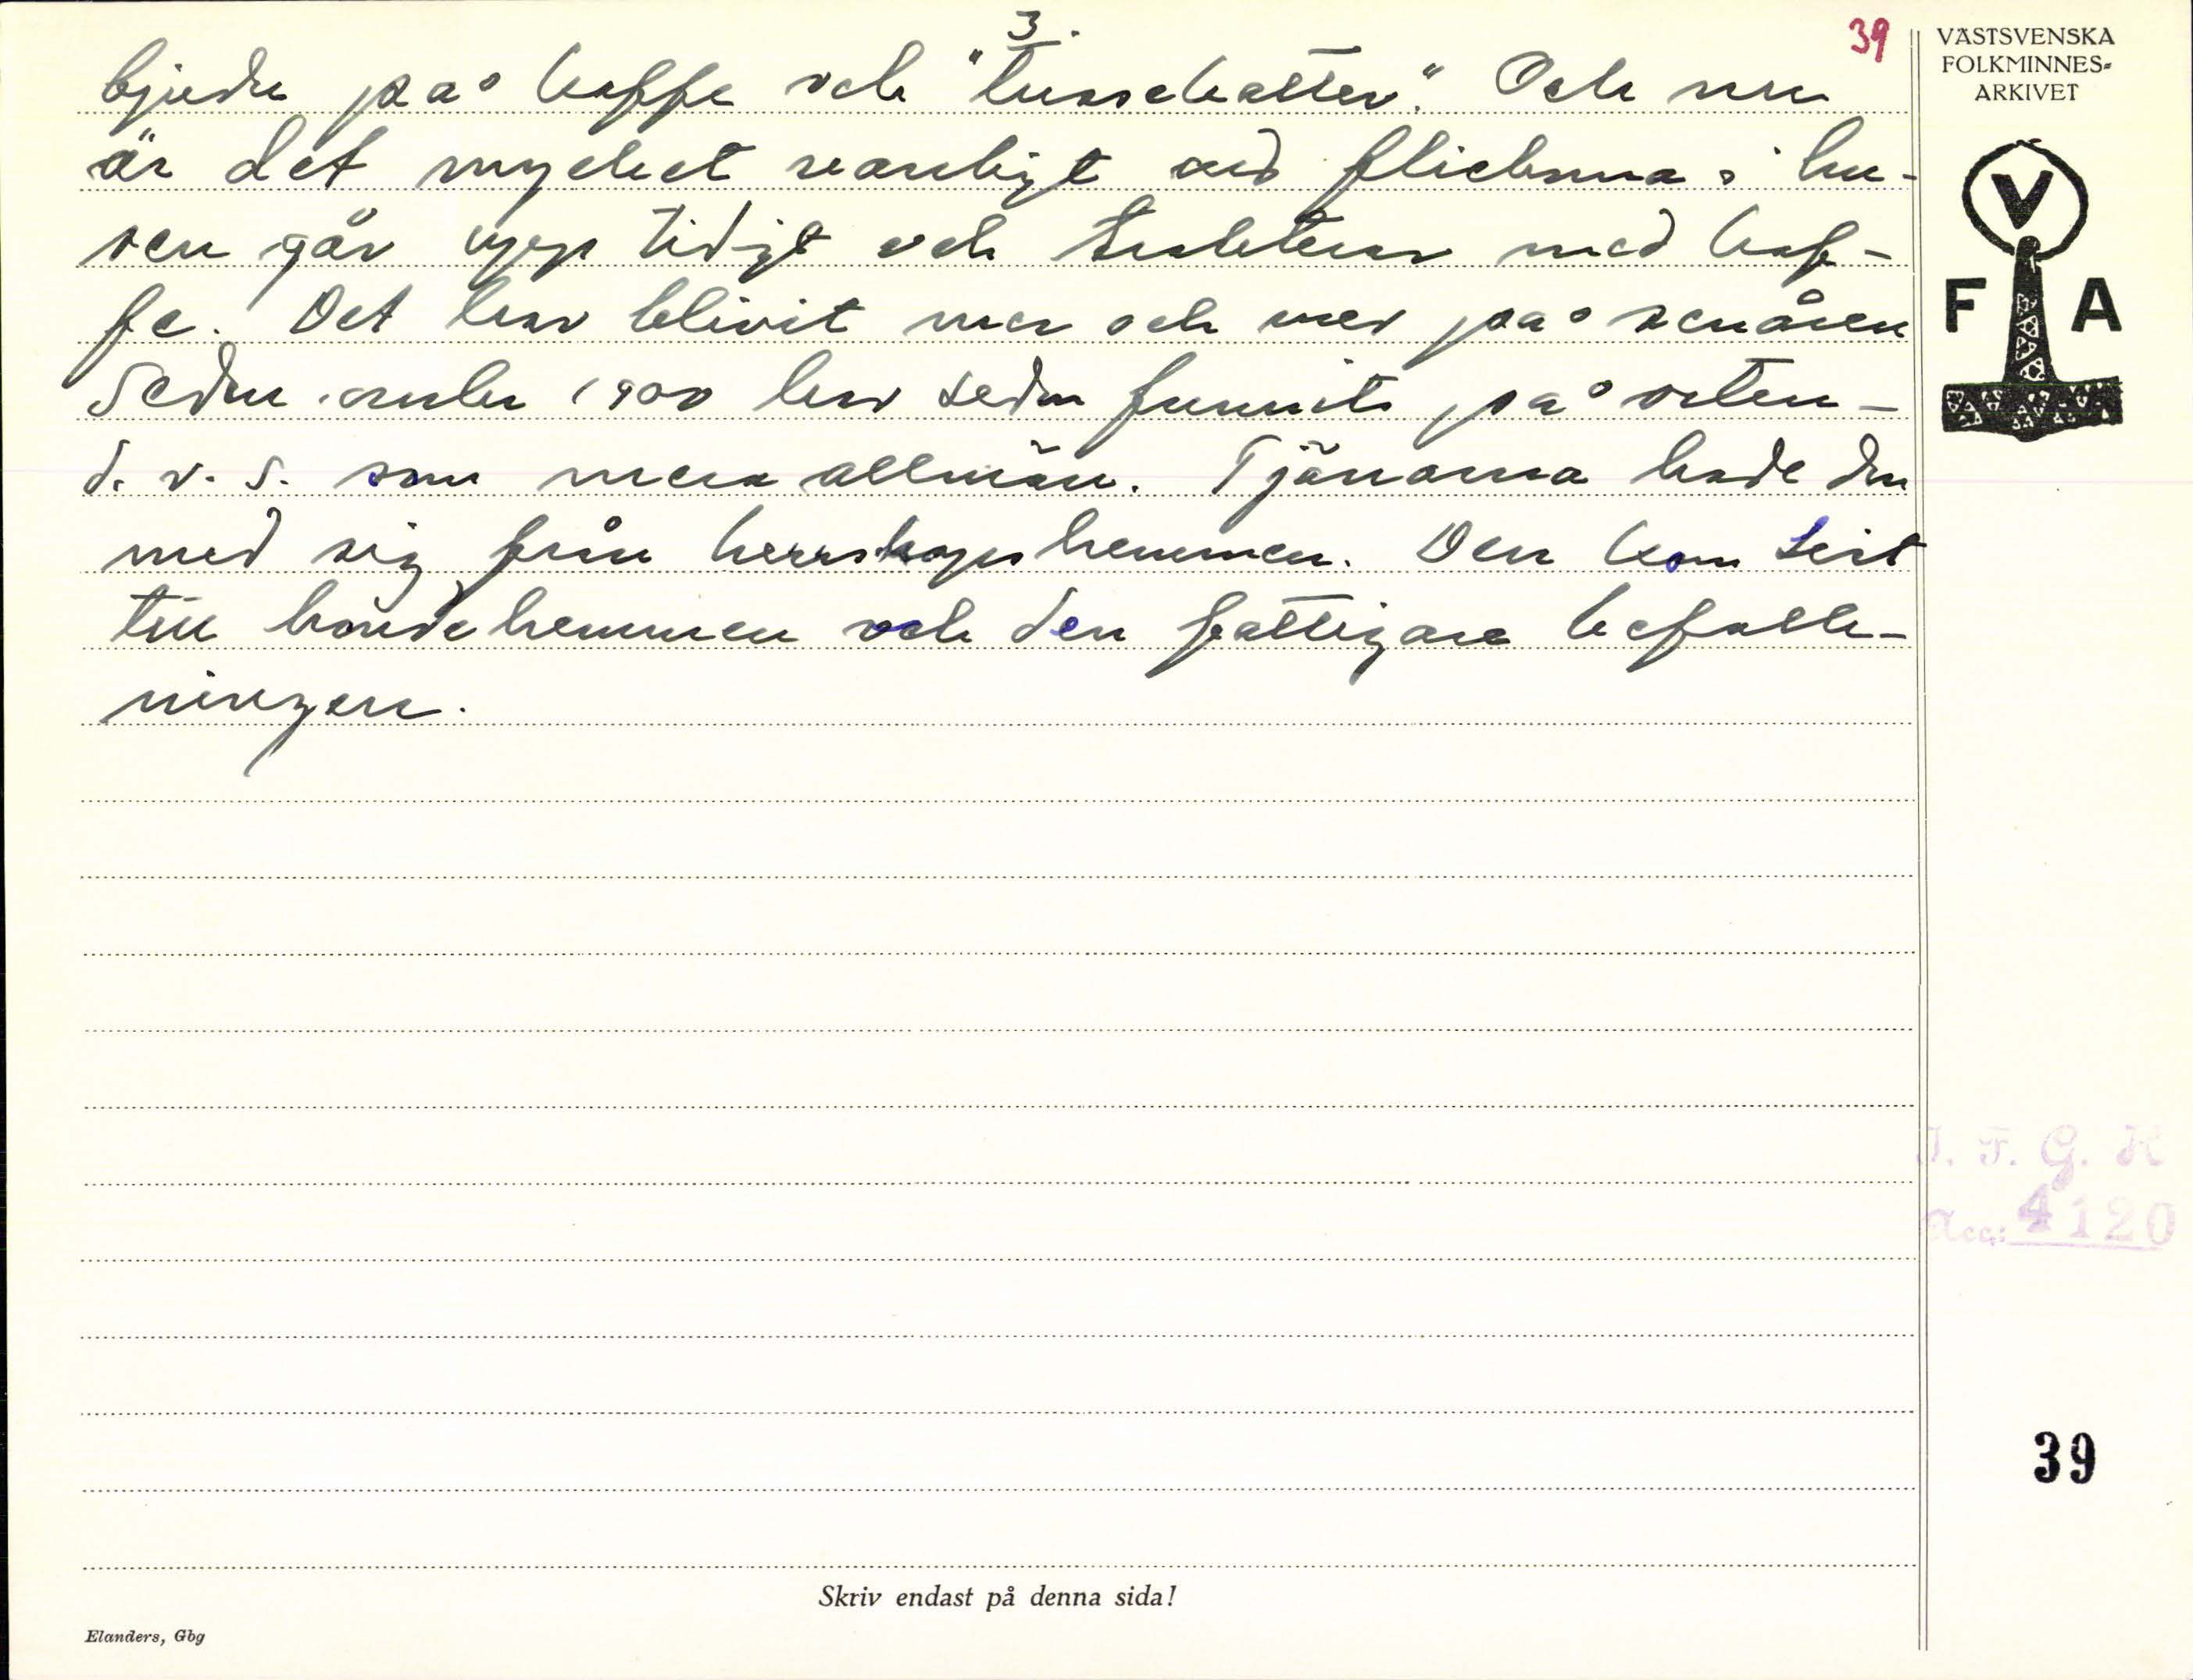 3.
39
bjuda på kaffe och "lussekatter". Och nu
är det mycket vanligt att flickorna i hu-
sen går upp tidigt och trakterar med kaf-
fe. Det har blivit mer och mer på senåren
Sedan omkr 1900 har seden funnits på orten-
d. v. s. som mera allmän. Tjänarna hade den
med sig från herrskapshemmen. Den kom sist
till bondehemmen och den fattigare befolk-
ningen.
VÄSTSVENSKA
FOLKMINNES-
ARKIVET
V
F A
I. F. G. H
Acc: 4120
39
Skriv endast på denna sida!
Elanders, Gbg